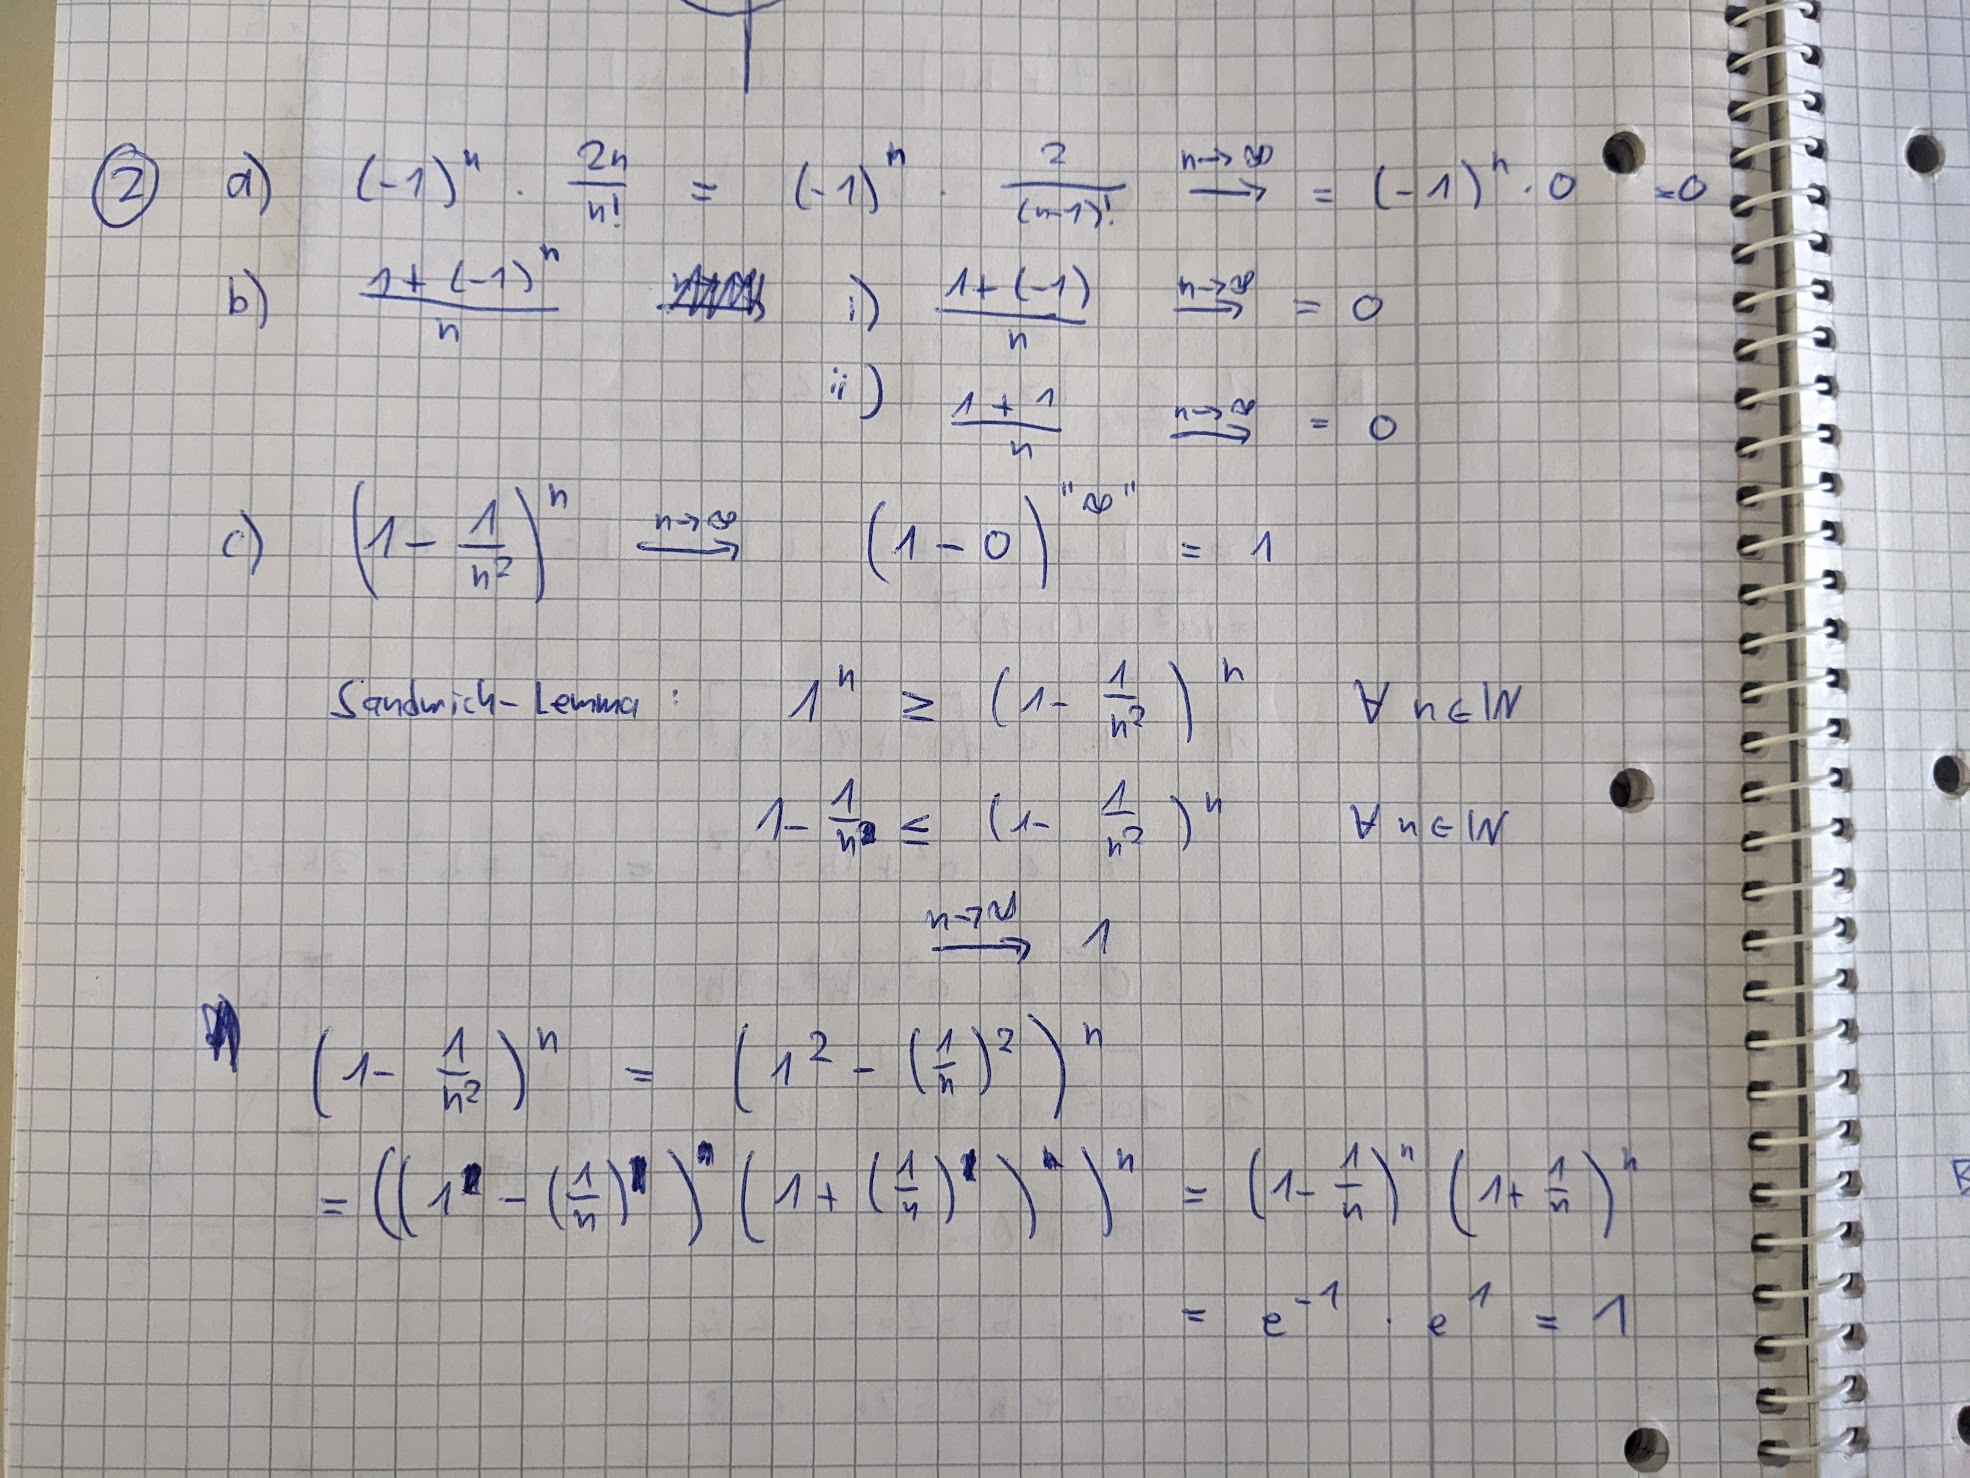 ② a) (-1)^n · 2n/n! = (-1)^n · 2/(n-1)! →(n→∞) = (-1)^n · 0 = 0
b) (1+(-1)^n)/n i) (1+(-1))/n →(n→∞) = 0
ii) (1+1)/n →(n→∞) = 0
c) (1 - 1/n²)^n →(n→∞) (1-0)^"∞" = 1
Sandwich-Lemma: 1^n ≥ (1 - 1/n²)^n ∀ n∈ℕ
1 - 1/n ≤ (1 - 1/n²)^n ∀ n∈ℕ
→(n→∞) 1
(1 - 1/n²)^n = (1² - (1/n)²)^n
= ((1 - (1/n)) (1 + (1/n)))^n = (1 - 1/n)^n (1 + 1/n)^n
= e^-1 · e^1 = 1